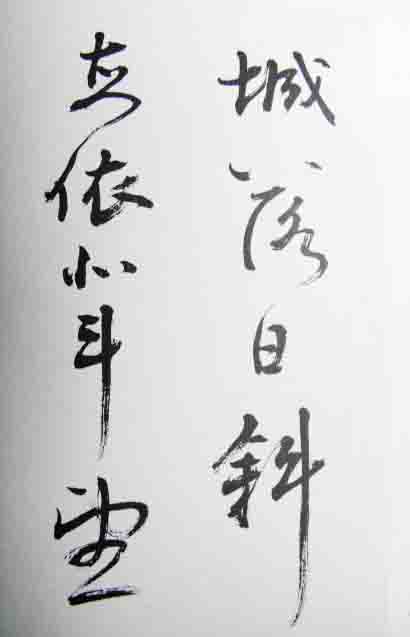 城落日斜
每依北斗望